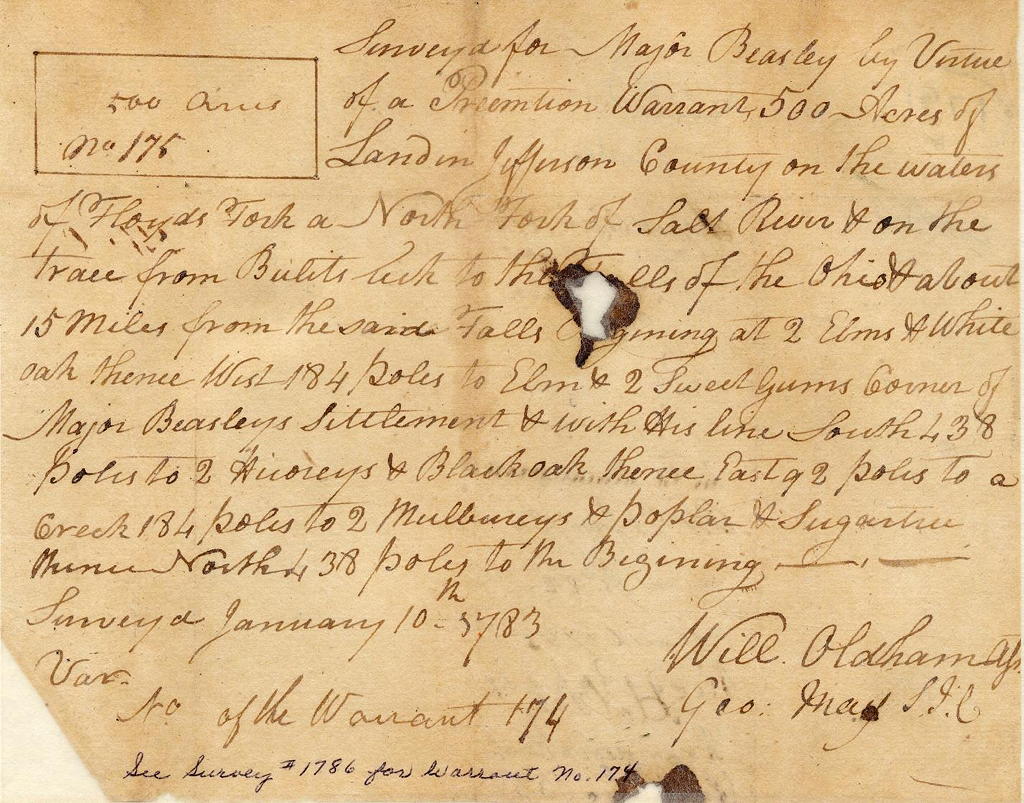 500 Acres
No 175
Surveyd for Major Beasley by Virtue
of a Preemtion Warrant, 500 Acres of
Land in Jefferson County on the waters
of Floyds Fork a North Fork of Salt River & on the
trace from Bulits lick to the lls of the Ohio & about
15 Miles from the said Falls gining at 2 Elms & White
oak thence West 184 poles to Elm & 2 Sweet Gums Corner of
Major Beasleys Settlement & with His line South 438
poles to 2 Hicoreys & Black oak thence East 92 poles to a
Creek 184 poles to 2 Mulbureys & poplar & Sugartree
thence North 438 poles to the Begining
Surveyd January 10th 1783
Will. Oldham
Var.
Geo: May S J C
No of the Warrant 174
See Survey # 1786 for Warrant No. 174